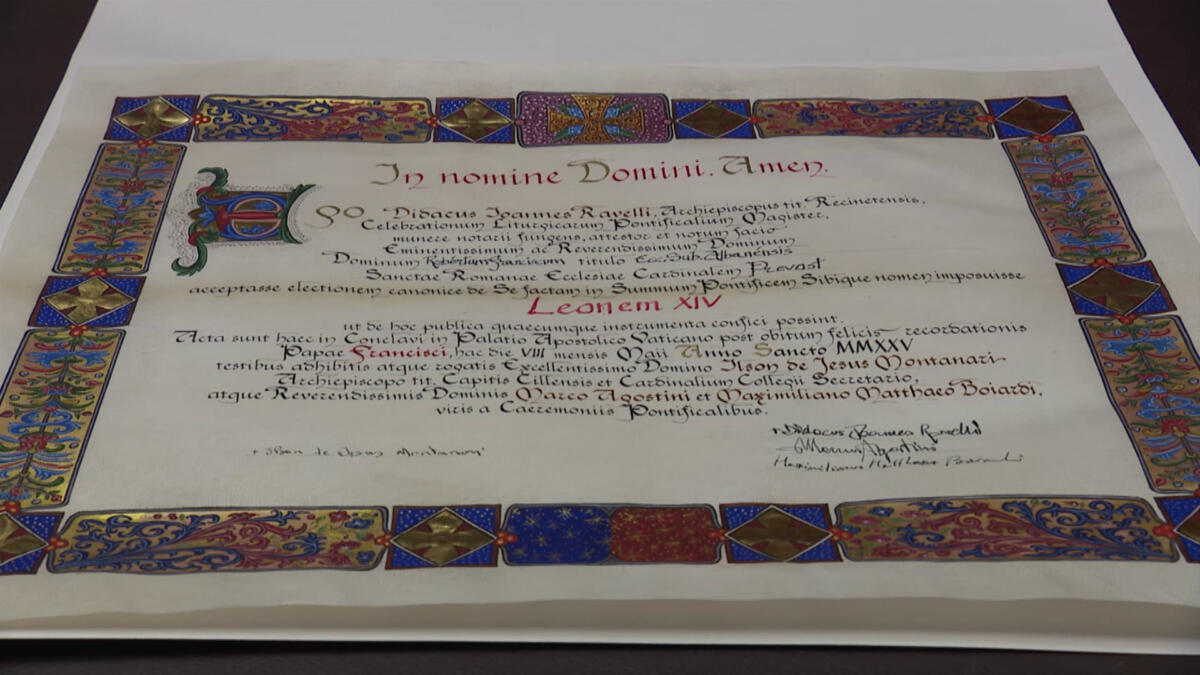 In nomine Domini. Amen.
Ego Didacus Ioannes Ravelli, Archiepiscopus tit. Recinetensis,
Celebrationum Liturgicarum Pontificalium Magister,
munere notarii fungens, attestor et notum facio
Eminentissimum ac Reverendissimum Dominum
Dominum Robertum Franciscum titulo Eccl. Sub. Albanensis
Sanctae Romanae Ecclesiae Cardinalem Prevost
acceptasse electionem canonice de Se factam in Summum Pontificem Sibique nomen imposuisse
Leonem XIV
ut de hoc publica quaecumque instrumenta confici possint.
Acta sunt haec in Conclavi in Palatio Apostolico Vaticano post obitum felicis recordationis
Papae Francisci, hac die VIII mensis Maii Anno Sancto MMXXV
testibus adhibitis atque rogatis Excellentissimo Domino Ilson de Jesus Montanari
Archiepiscopo tit. Capitis Cillensis et Cardinalium Collegii Secretario,
atque Reverendissimis Dominis Marco Agostini et Maximiliano Matthaeo Boiardi,
viris a Caeremoniis Pontificalibus.
+ Didacus Ioannes Ravelli
+ Ilson de Jesus Montanari
Marcus Agostini
Maximilianus Matthaeus Boiardi